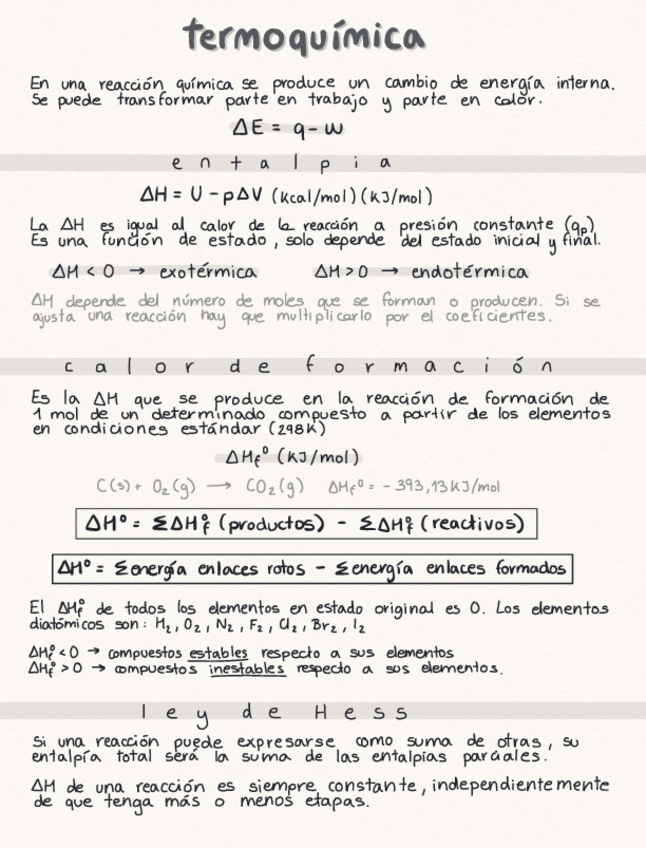 termoquímica
En una reacción química se produce un cambio de energía interna.
Se puede transformar parte en trabajo y parte en calor.
ΔE = q - w
entalpia
ΔH = U - pΔV (kcal/mol)(KJ/mol)
La ΔH es igual al calor de la reacción a presión constante (qp)
Es una función de estado, solo depende del estado inicial y final.
ΔH < 0 → exotérmica ΔH > 0 → endotérmica
ΔH depende del número de moles que se forman o producen. Si se
ajusta una reacción hay que multiplicarlo por el coeficientes.
calor de formación
Es la ΔH que se produce en la reacción de formación de
1 mol de un determinado compuesto a partir de los elementos
en condiciones estándar (298K)
ΔHf⁰ (KJ/mol)
C(s) + O₂(g) → CO₂(g) ΔHf⁰ = -393,13 KJ/mol
ΔH⁰ = ΣΔHf⁰ (productos) - ΣΔHf⁰ (reactivos)
ΔH⁰ = Σenergía enlaces rotos - Σenergía enlaces formados
El ΔHf⁰ de todos los elementos en estado original es 0. Los elementos
diatómicos son: H₂, O₂, N₂, F₂, Cl₂, Br₂, I₂
ΔHf⁰ < 0 → compuestos estables respecto a sus elementos
ΔHf⁰ > 0 → compuestos inestables respecto a sus elementos.
ley de Hess
Si una reacción puede expresarse como suma de otras, su
entalpía total será la suma de las entalpias parciales.
ΔH de una reacción es siempre constante, independientemente
de que tenga más o menos etapas.